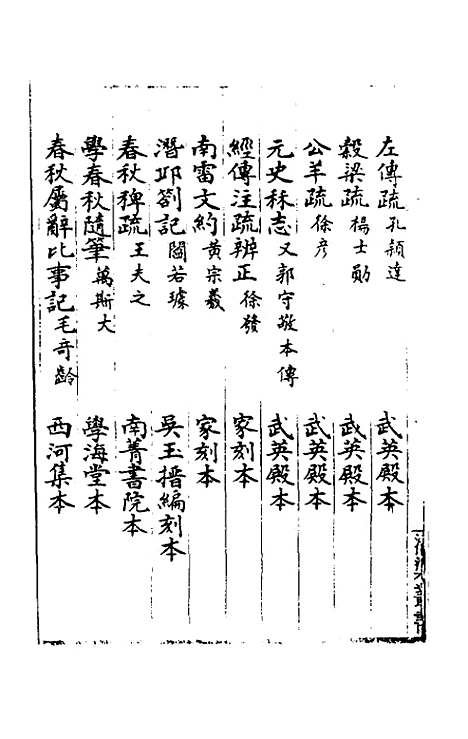 左傳疏孔穎達 武英殿本
穀梁疏楊士勛 武英殿本
公羊疏徐彦 武英殿本
元史秝志又郭守敬本傳 武英殿本
經傳注疏辨正徐發 家刻本
南雷文約黄宗羲 家刻本
潛邱劄記閻若璩 吳玉搢編刻本
春秋稗疏王夫之 南菁書院本
學春秋隨筆萬斯大 學海堂本
春秋屬辭比事記毛奇齡 西河集本